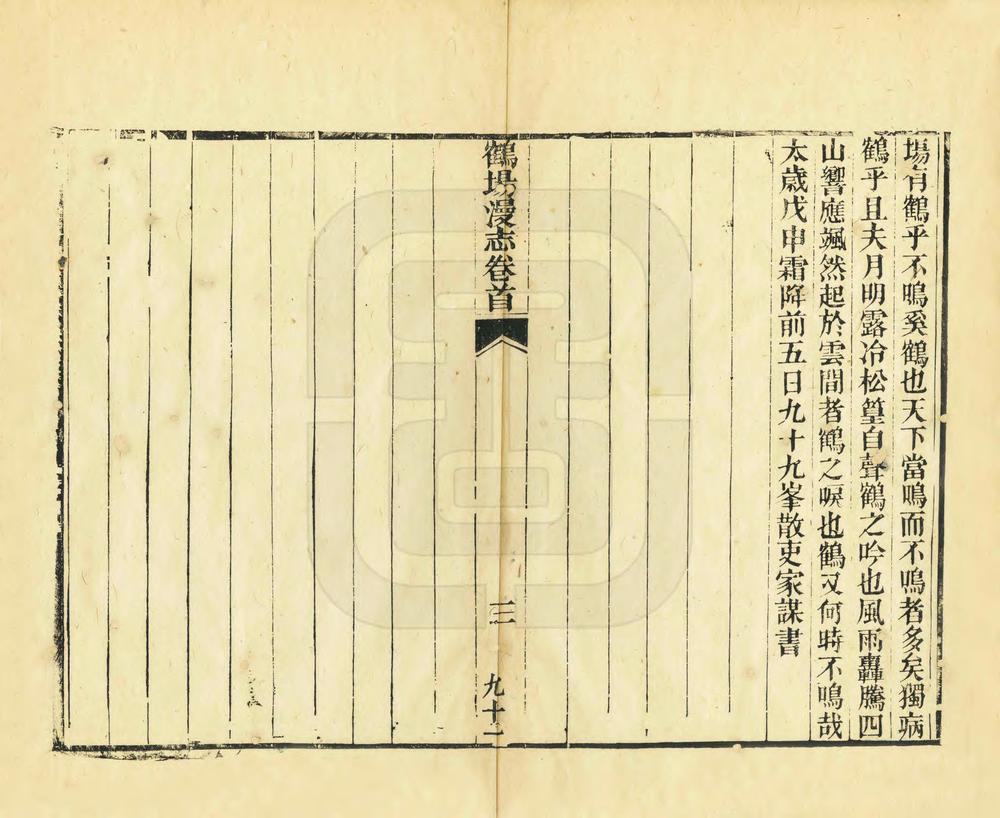 塲有鶴乎不鳴奚鶴也天下當鳴而不鳴者多矣獨病
鶴乎且夫月明露冷松篁自聲鶴之吟也風雨轟騰四
山響應颯然起於雲間者鶴之唳也鶴又何時不鳴哉
太歲戊申霜降前五日九十九峯散吏家謀書
鶴塲漫志卷首
三
九十一